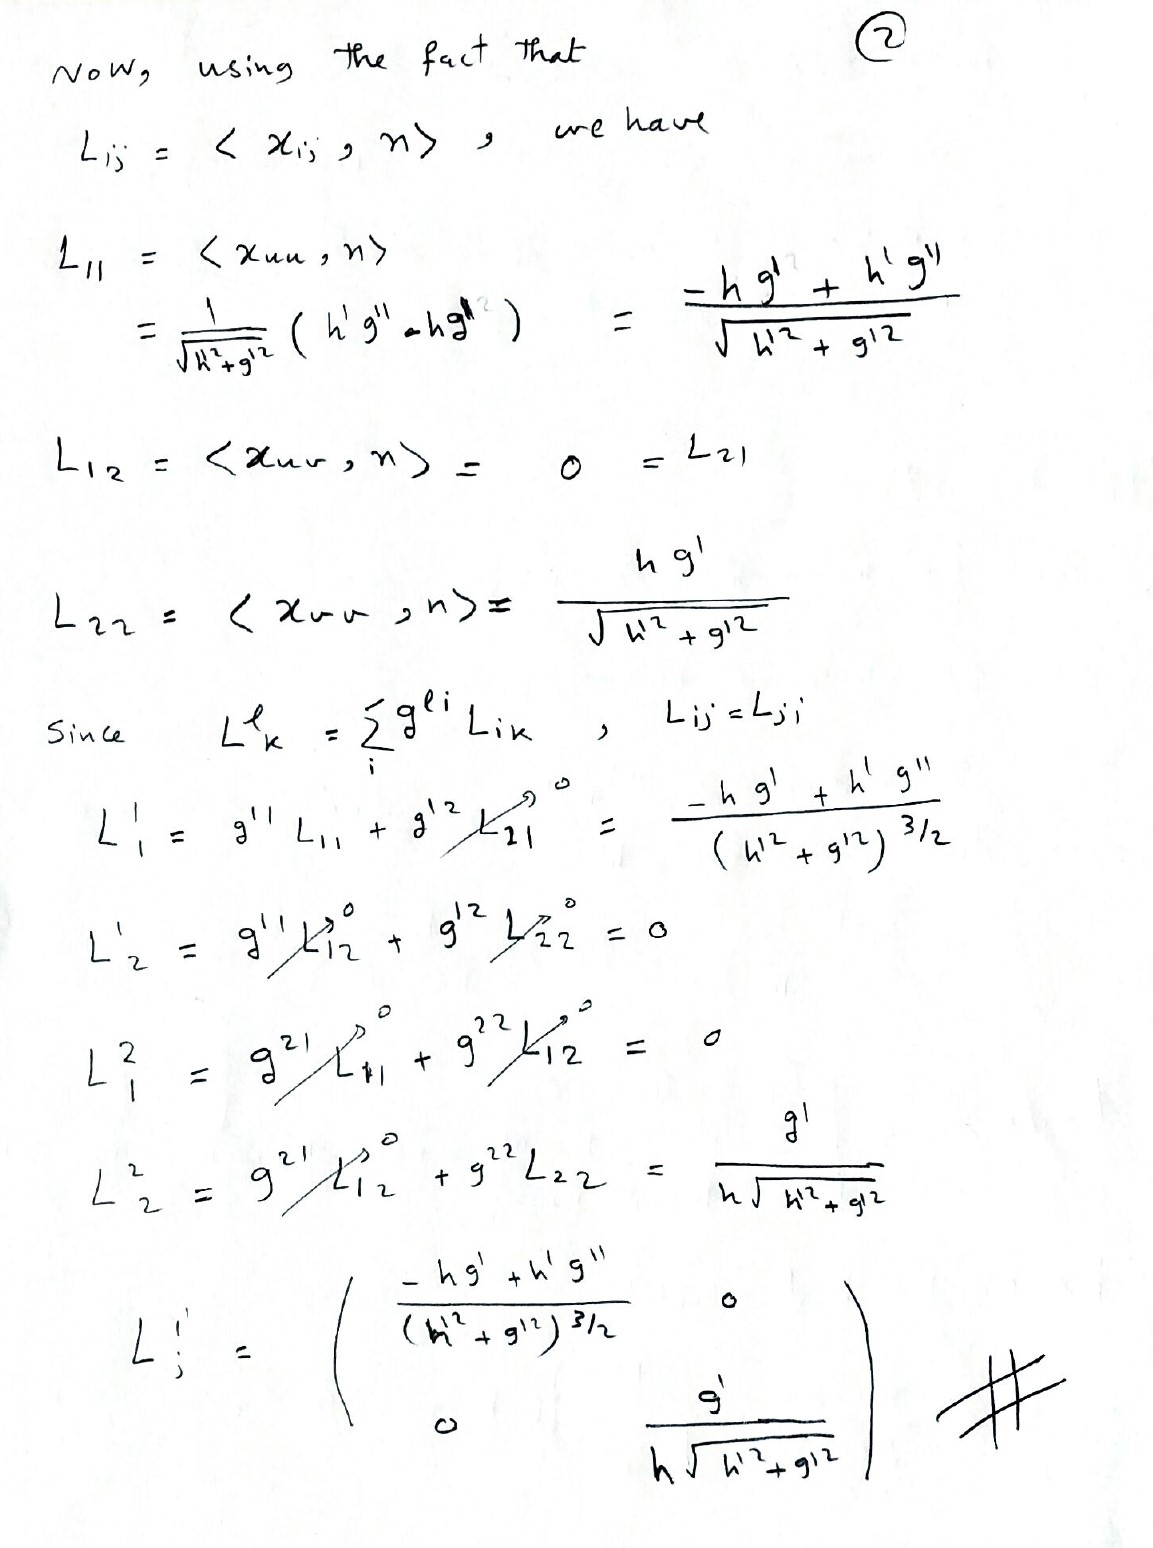 ②
Now, using the fact that
Lij = < xij , n> , we have
L11 = < xuu , n>
= 1/√(h'²+g'²) ( h'g'' - hg' ) = (-hg' + h'g'')/√(h'² + g'²)
L12 = <xuv , n> = 0 = L21
L22 = < xvv , n> = hg'/√(h'² + g'²)
Since L^l_k = Σ_i g^{li} Lik , Lij = Lji
L^1_1 = g^{11} L11 + g^{12} L21 →0 = (-hg' + h'g'')/(h'² + g'²)^{3/2}
L^1_2 = g^{11} L12 →0 + g^{12} L22 →0 = 0
L^2_1 = g^{21} L11 →0 + g^{22} L12 →0 = 0
L^2_2 = g^{21} L12 →0 + g^{22} L22 = g'/(h√(h'² + g'²))
L^i_j = ( (-hg' + h'g'')/(h'² + g'²)^{3/2} 0
0 g'/(h√(h'² + g'²)) ) #